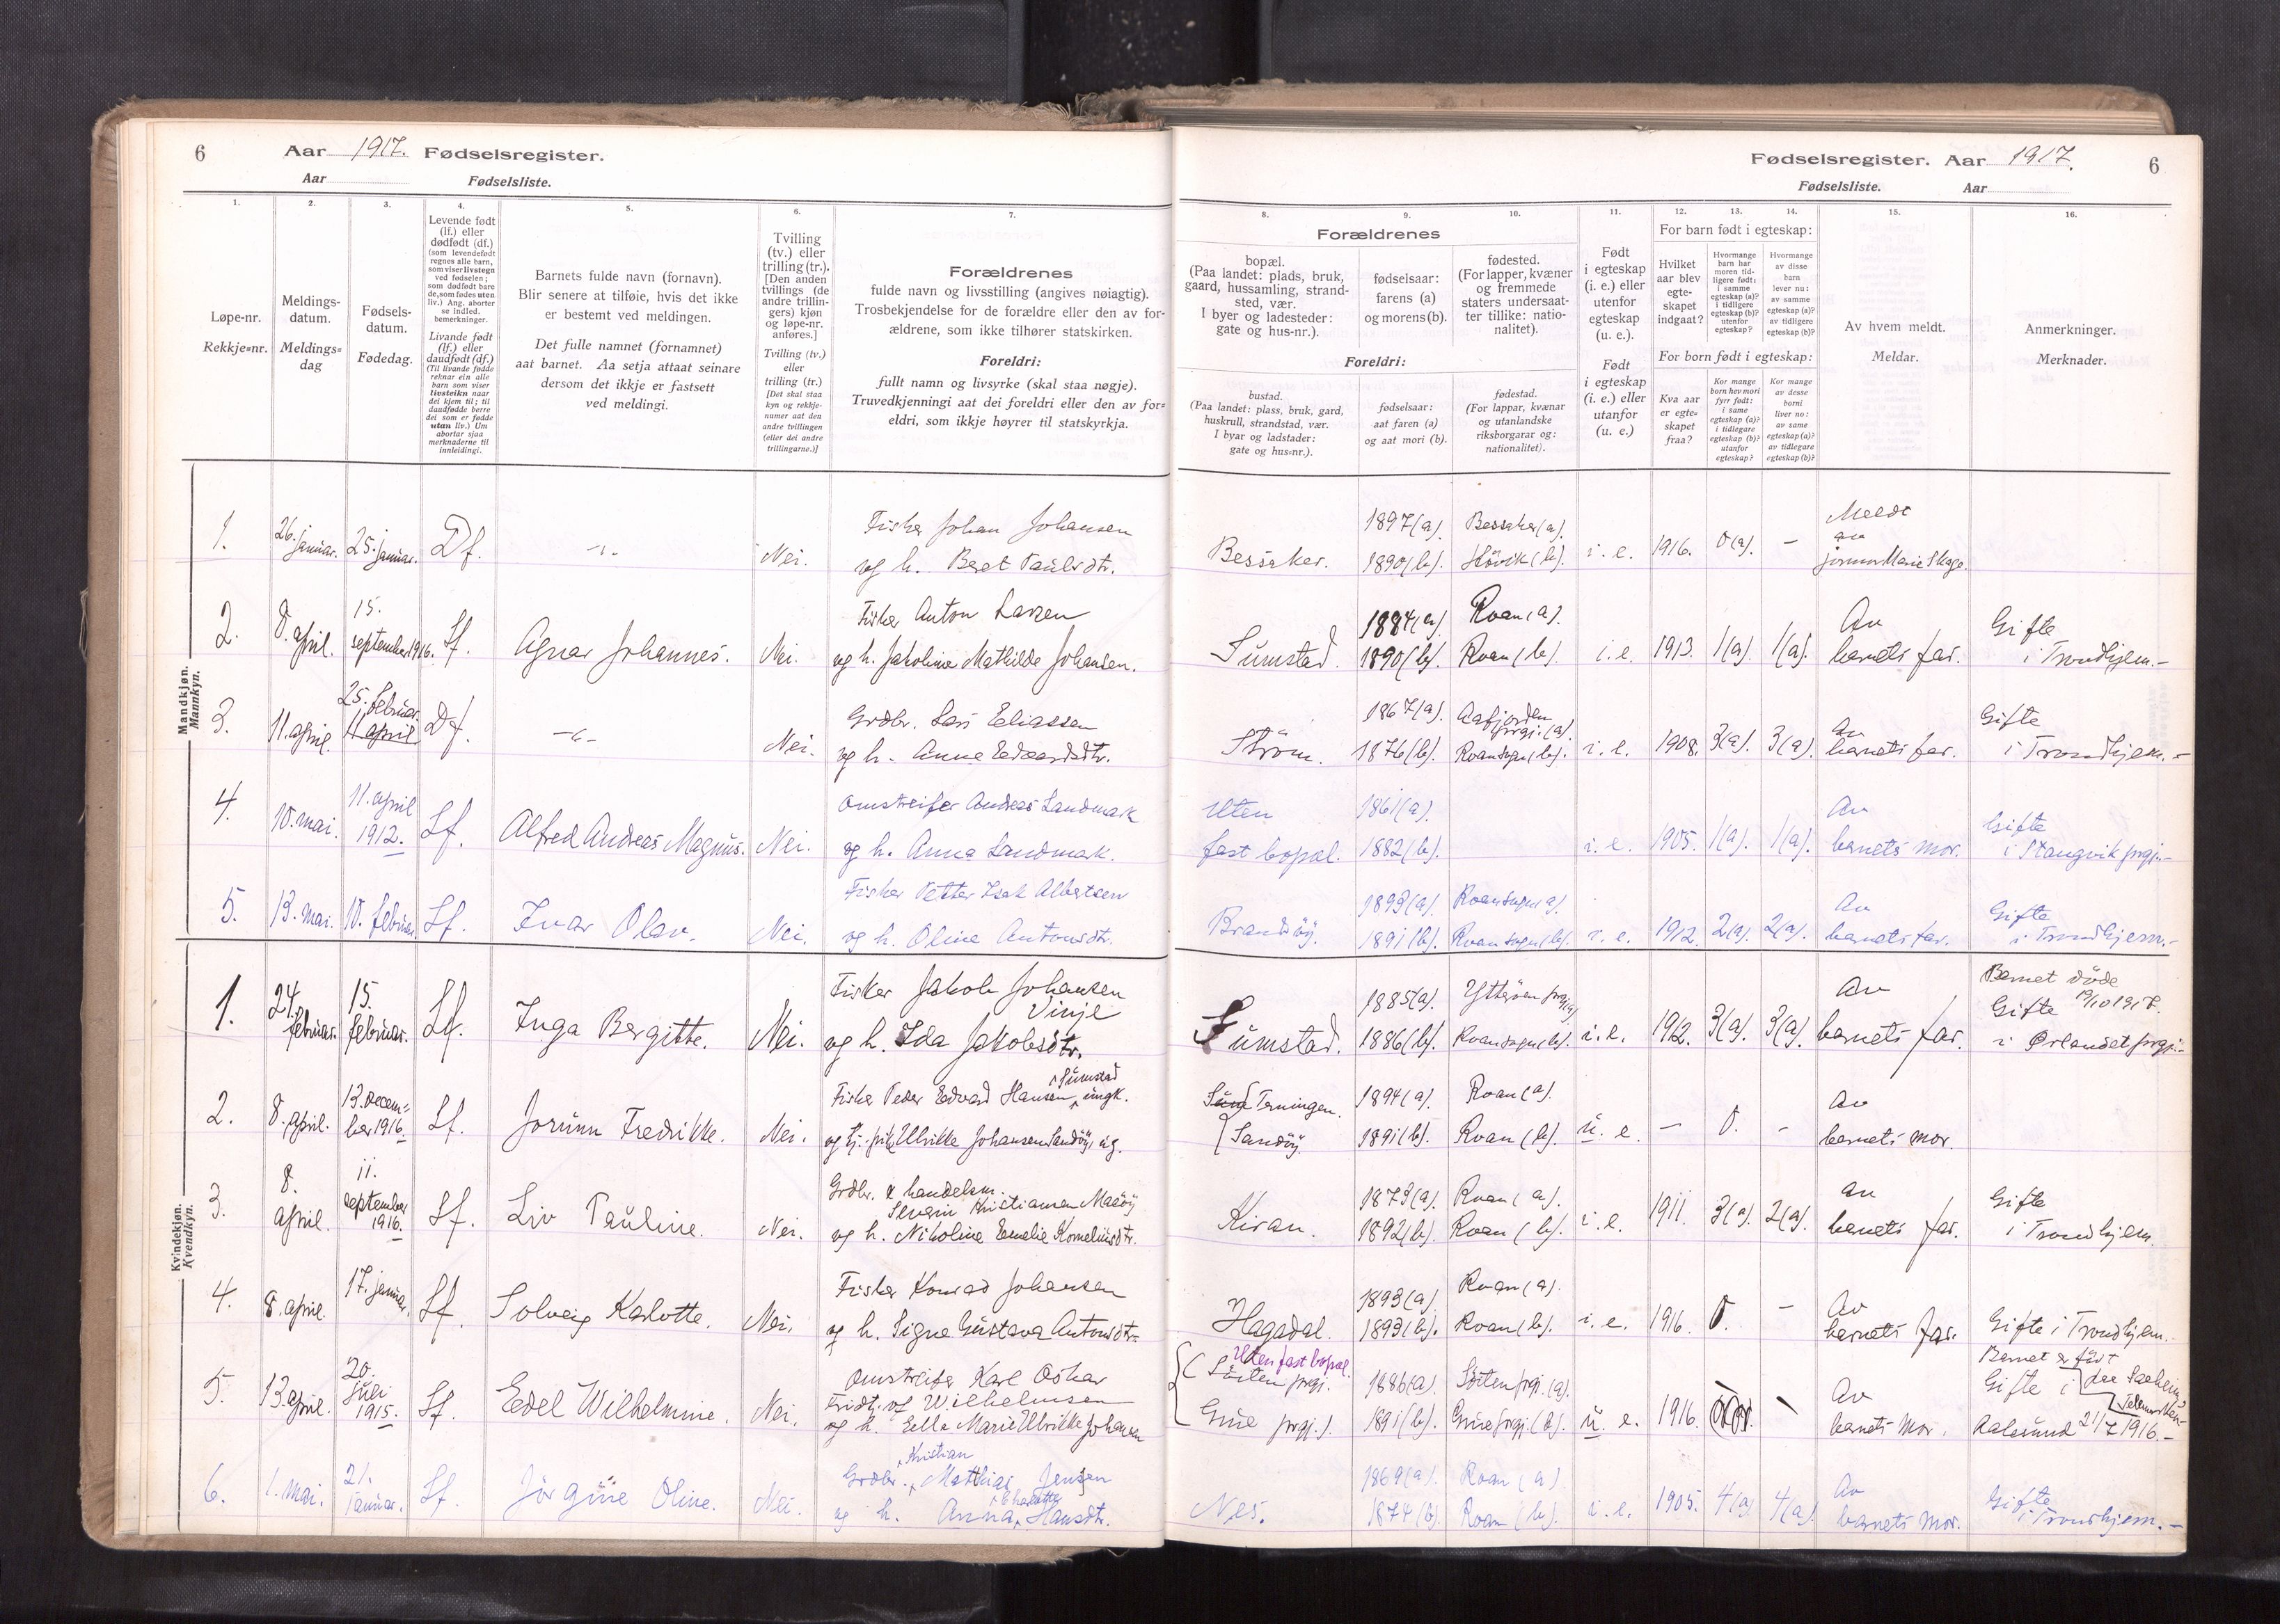 6
Aar 1917. Fødselsregister.
Aar Fødselsliste.
1.
2.
3.
4.
5.
6.
7.
Løpe-nr.
Rekkje=nr.
Meldings-
datum.
Meldings=
dag
Fødsels-
datum.
Fødedag.
Levende født
(lf.) eller
dødfødt (df.)
(som levendefødt
regnes alle barn,
som viser livstegn
ved fødselen;
som dødfødt bare
de, som fødes uten
liv.) Ang. aborter
se indled.
bemerkninger.
Livande født
(lf.) eller
daudfødt (df.)
(Til livande fødde
reknar ein alle
barn som viser
livsteikn naar
dei kjem til; til
daudfødde berre
dei som er fødde
utan liv.) Um
abortar sjaa
merknaderne til
innleidingi.
Barnets fulde navn (fornavn).
Blir senere at tilføie, hvis det ikke
er bestemt ved meldingen.
Det fulle namnet (fornamnet)
aat barnet. Aa setja attaat seinare
dersom det ikkje er fastsett
ved meldingi.
Tvilling
(tv.) eller
trilling (tr.).
[Den anden
tvillings (de
andre trillin-
gers) kjøn
og løpe-nr.
anføres.]
Tvilling (tv.)
eller
trilling (tr.)
[Det skal staa
kyn og rekkje-
numer aat den
andre tvillingen
(eller dei andre
trillingarne.)]
Forældrenes
fulde navn og livsstilling (angives nøiagtig).
Trosbekjendelse for de forældre eller den av for-
ældrene, som ikke tilhører statskirken.
Foreldri:
fullt namn og livsyrke (skal staa nøgje).
Truvedkjenningi aat dei foreldri eller den av for=
eldri, som ikkje høyrer til statskyrkja.
Mandkjøn.
Mannkyn.
1. 26. januar. 25. januar. Df. -"- Nei.
Fisker Johan Johansen
og h. Beret Paulsdtr.
2. 8. april. 15. september 1916. Lf. Agnar Johannes. Nei.
Fisker Anton Larsen
og h. Jakoline Mathilde Johansen.
3. 11. april. 25. februar. 11 april Df. -"- Nei.
Grdbr. Lars Eliassen
og h. Anne Edvardsdtr.
4. 10. mai. 11. april 1912. Lf. Alfred Andreas Magnus. Nei.
Omstreifer Andreas Landmark
og h. Anna Landmark.
5. 13. mai. 10. februar. Lf. Ivar Olav. Nei.
Fisker Petter Isak Albertsen
og h. Oline Antonsdtr.
Kvindekjøn.
Kvendkyn.
1. 24. februar. 15. februar. Lf. Inga Bergitte. Nei.
Fisker Jakob Johansen
Vinje
og h. Ida Jakobsdtr.
2. 8. april. 13. decem-
ber 1916. Lf. Jorunn Fredrikke. Nei.
Sumstad
Fisker Peder Edvard Hansen, ungk.
og tj. pike Ulrikke Johansen Sandøy, ug.
3. 8. april. 11. september 1916. Lf. Liv Pauline. Nei.
Grdbr. & handelsm.
Severin Kristiansen Maasøy
og h. Nikoline Emelie Korneliusdtr.
4. 8. april. 17. januar. Lf. Solveig Karlotte. Nei.
Fisker Konrad Johansen
og h. Signe Gustava Antonsdtr.
5. 13. april. 20. juli 1915. Lf. Edel Wilhelmine. Nei.
Omstreifer Karl Oskar
Fridtjof Wilhelmsen
og h. Ella Marie Ulrikke Johansen
6. 1. mai. 21. januar. Lf. Jörgine Oline. Nei.
Kristian
Grdbr. Mathias Jensen
Charlotte
og h. Anna Hansdtr.
Fødselsregister. Aar 1917.
6
Fødselsliste. Aar
8.
9.
10.
11.
12.
13.
14.
15.
16.
Forældrenes
bopæl.
(Paa landet: plads, bruk,
gaard, hussamling, strand-
sted, vær.
I byer og ladesteder:
gate og hus-nr.).
fødselsaar:
farens (a)
og morens (b).
fødested.
(For lapper, kvæner
og fremmede
staters undersaat-
ter tillike: natio-
nalitet).
Foreldri:
bustad.
(Paa landet: plass, bruk, gard,
huskrull, strandstad, vær.
I byar og ladstader:
gate og hus=nr.).
fødselsaar:
aat faren (a)
og aat mori (b).
fødestad.
(For lappar, kvænar
og utanlandske
riksborgarar og:
nationalitet).
Født
i egteskap
(i. e.) eller
utenfor
egteskap
(u. e.).
Født
i egteskap
(i. e.) eller
utanfor
(u. e.)
For barn født i egteskap:
Hvilket
aar blev
egte-
skapet
indgaat?
Hvormange
barn har
moren tid-
ligere født:
i samme
egteskap (a)?
i tidligere
egteskap (b)?
utenfor
egteskap?
Hvormange
av disse
barn
lever nu:
av samme
egteskap (a)?
av tidligere
egteskap (b)?
For born født i egteskap:
Kva aar
er egte=
skapet
fraa?
Kor mange
born hev mori
fyrr født:
i same
egteskap (a)?
i tidlegare
egteskap (b)?
utanfor
egteskap?
Kor mange
av desse
borni
liver no:
av same
egteskap (a)?
av tidlegare
egteskap (b)?
Av hvem meldt.
Meldar.
Anmerkninger.
Merknader.
Bessaker. 1897 (a). 1890 (b). Bessaker (a). Høvik (b). i. e. 1916. 0 (a). –
Meldt
av
jormor Marie Skage.
Sumstad. 1884 (a). 1890 (b). Roan (a). Roan (b). i. e. 1913. 1 (a). 1 (a).
Av
barnets far.
Gifte
i Trondhjem.-
Strøm. 1867 (a). 1876 (b). Aafjorden
prgj. (a). Roan sogn (b). i. e. 1908. 3 (a). 3 (a).
Av
barnets far.
Gifte
i Trondhjem.-
Uten
fast bopæl. 1861 (a). 1882 (b). i. e. 1905. 1 (a). 1 (a).
Av
barnets mor.
Gifte
i Stangvik prgj.-
Brandøy. 1893 (a). 1891 (b). Roan sogn (a). Roan sogn (b). i. e. 1912. 2 (a). 2 (a).
Av
barnets far.
Gifte
i Trondhjem.-
Sumstad. 1885 (a). 1886 (b). Ytterøen prgj (a) Roan sogn (b). i. e. 1912. 3 (a). 3 (a).
Av
barnets far.
Barnet døde
Gifte
i Ørlandet prgj.-
Terningen.
Sandøy. 1894 (a). 1891 (b). Roan (a). Roan (b). u. e. – 0. –
Av
barnets mor.
Kiran. 1873 (a). 1892 (b). Roan (a). Roan (b). i. e. 1911. 3 (a). 2 (a).
Av
barnets far.
Gifte
i Trondhjem.
Hagadal. 1893 (a). 1893 (b). Roan (a). Roan (b). i. e. 1916. 0. –
Av
barnets far.
Gifte i Trondhjem.
Uten fast bopæl.
Sørten prgj.
Grue prgj.). 1886 (a). 1891 (b). Sørten prgj. (a). Grue prgj. (b). u. e. 1916. –
Av
barnets mor.
Barnet er født
Gifte i
Aalesund 21/7 1916.-
Nes. 1869 (a). 1874 (b). Roan (a) Roan (b). i. e. 1905. 4 (a) 4 (a).
Av
barnets mor.
Gifte
i Trondhjem.-